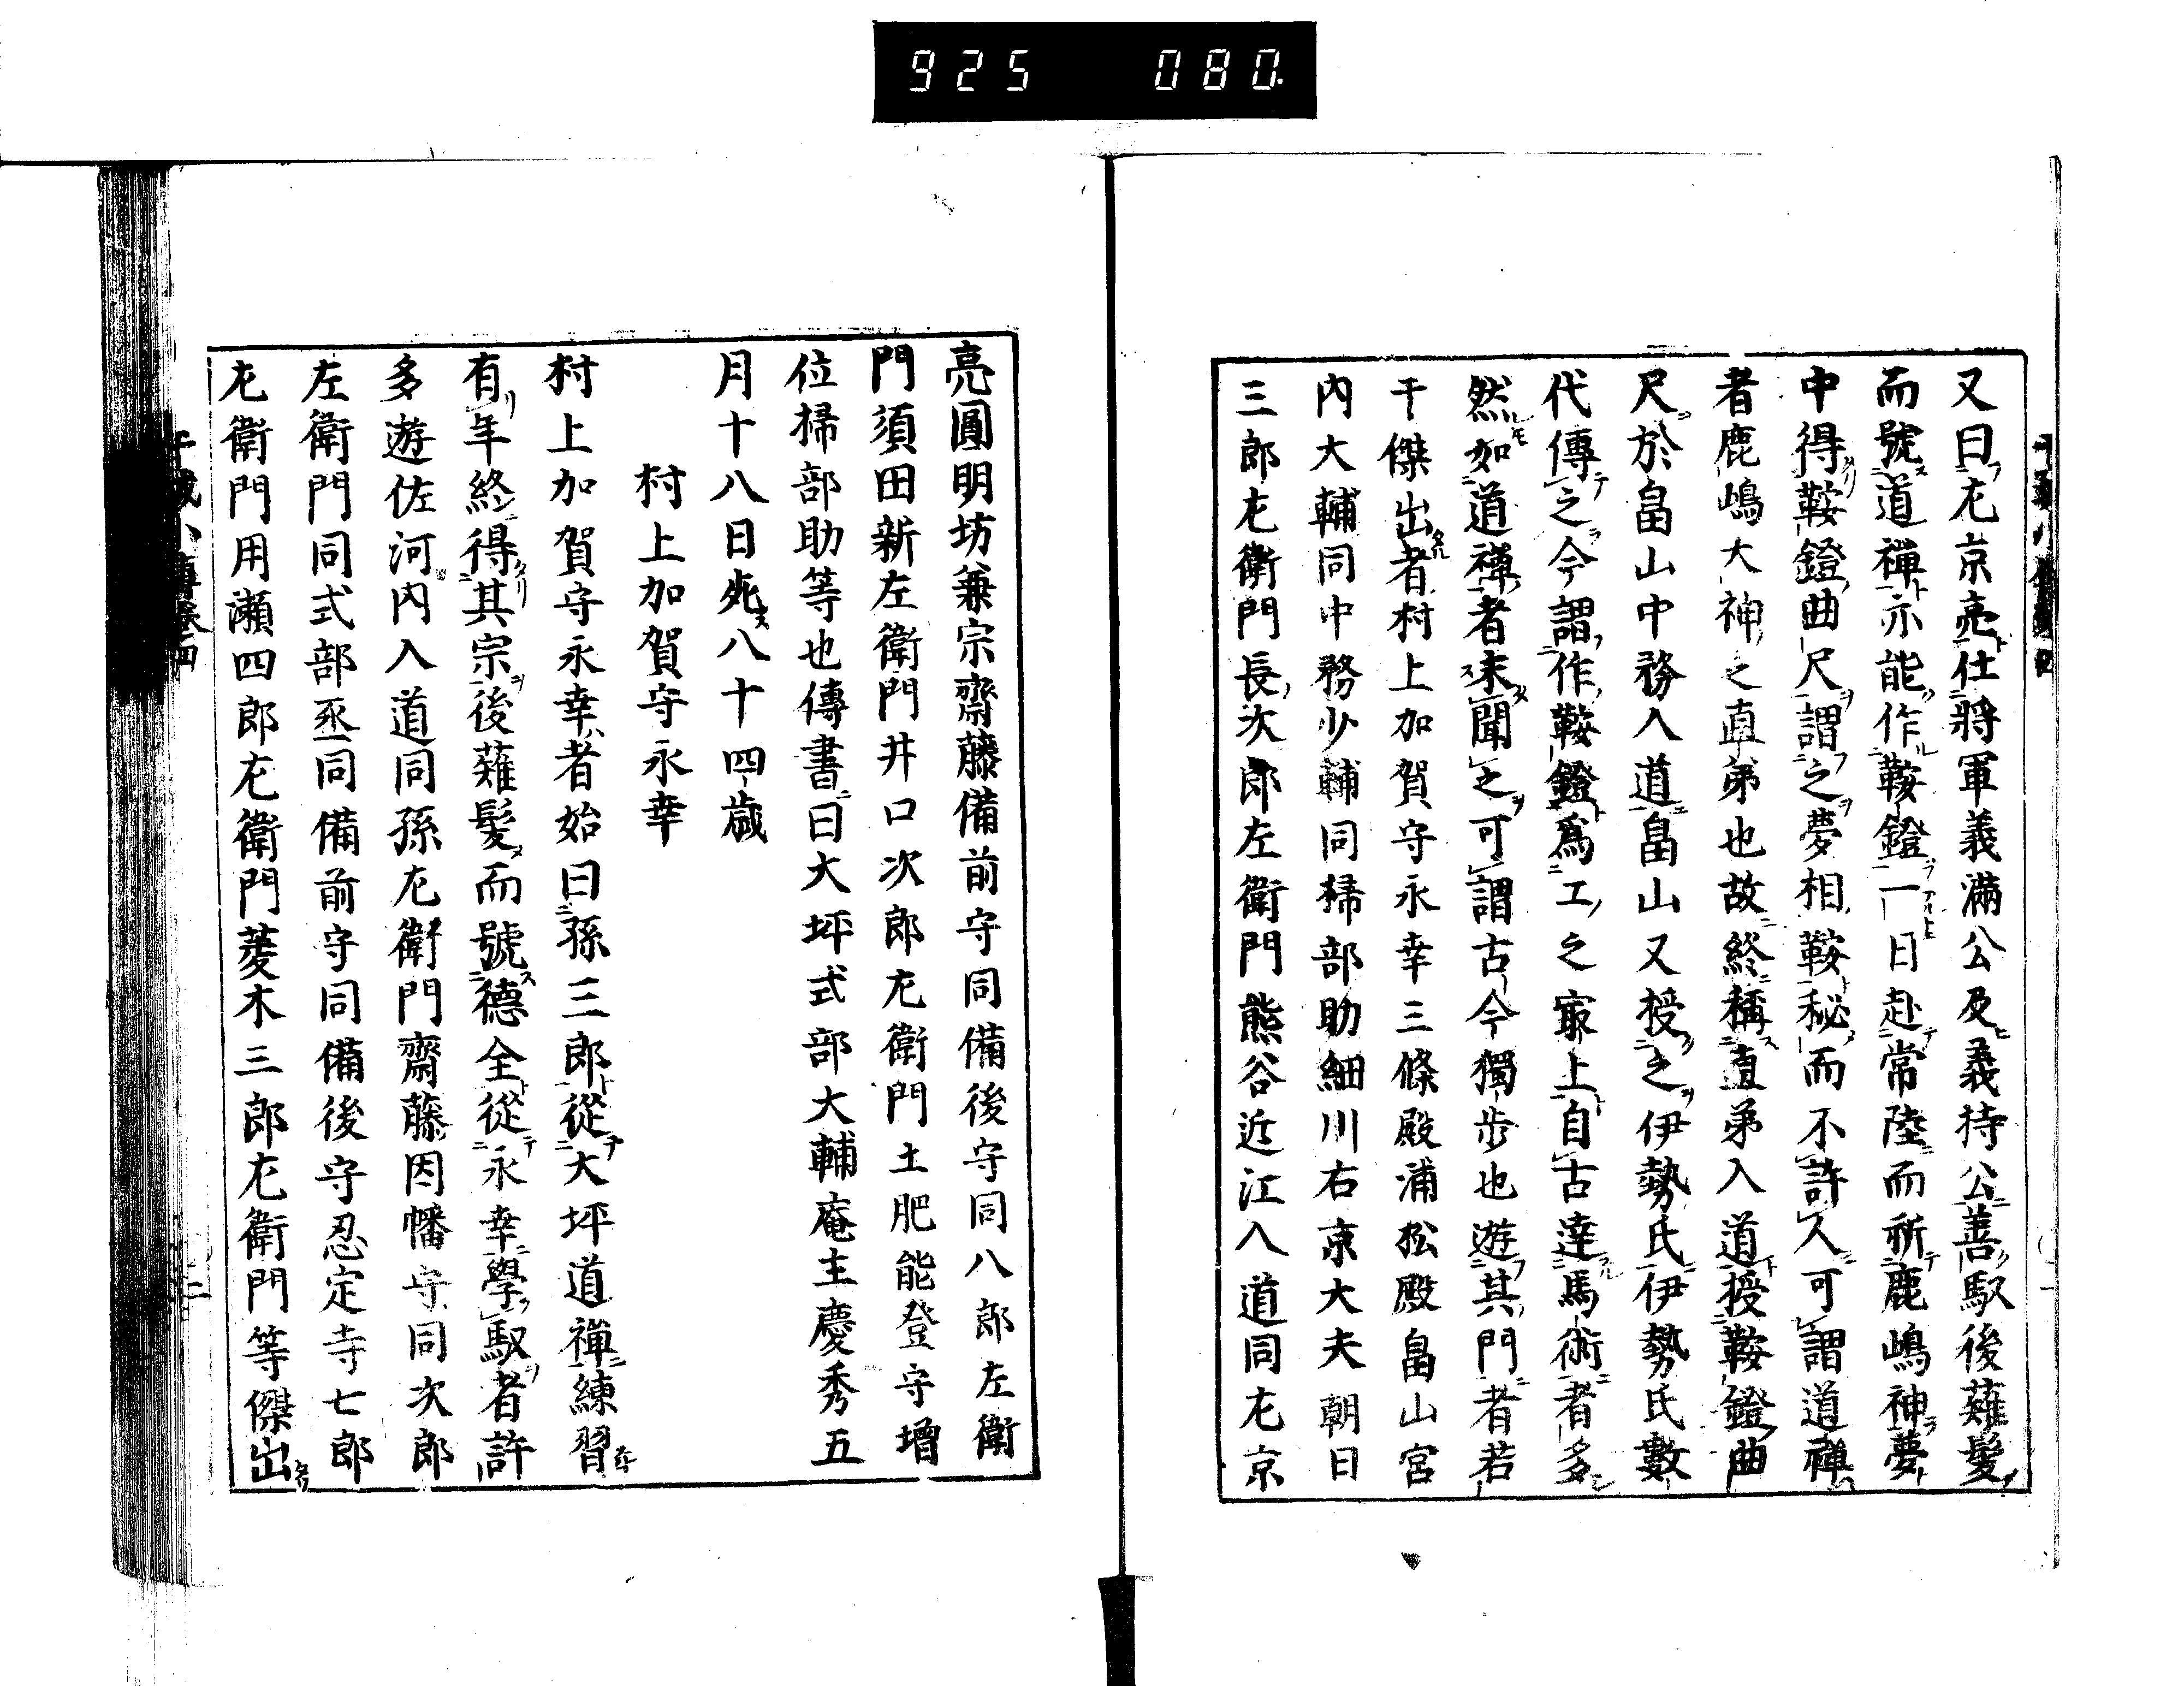 925 080
又曰左京亮仕將軍義滿公及義持公善馭後薙髮
而號道禪亦能作鞍鐙一日赴常陸而祈鹿嶋神夢
中得鞍鐙曲尺謂之夢相鞍秘而不許人可謂道禪
者鹿嶋大神之直弟也故終稱直弟入道授鞍鐙曲
尺於畠山中務入道畠山又授之伊勢氏伊勢氏數
代傳之今謂作鞍鐙爲工之最上自古達馬術者多
然如道禪者未聞之可謂古今獨步也遊其門者若
干傑出者村上加賀守永幸三條殿浦松殿畠山宮
內大輔同中務少輔同掃部助細川右京大夫朝日
三郎左衛門長次郎左衛門熊谷近江入道同左京
亮圓明坊兼宗齋藤備前守同備後守同八郎左衛
門須田新左衛門井口次郎左衛門土肥能登守增
位掃部助等也傳書曰大坪式部大輔庵主慶秀五
月十八日死八十四歲
村上加賀守永幸
村上加賀守永幸者始曰孫三郎從大坪道禪練習
有年終得其宗後薙髮而號德全從永幸學馭者許
多遊佐河內入道同孫左衛門齋藤因幡守同次郎
左衛門同式部丞同備前守同備後守忍定寺七郎
左衛門用瀬四郎左衛門菱木三郎左衛門等傑出